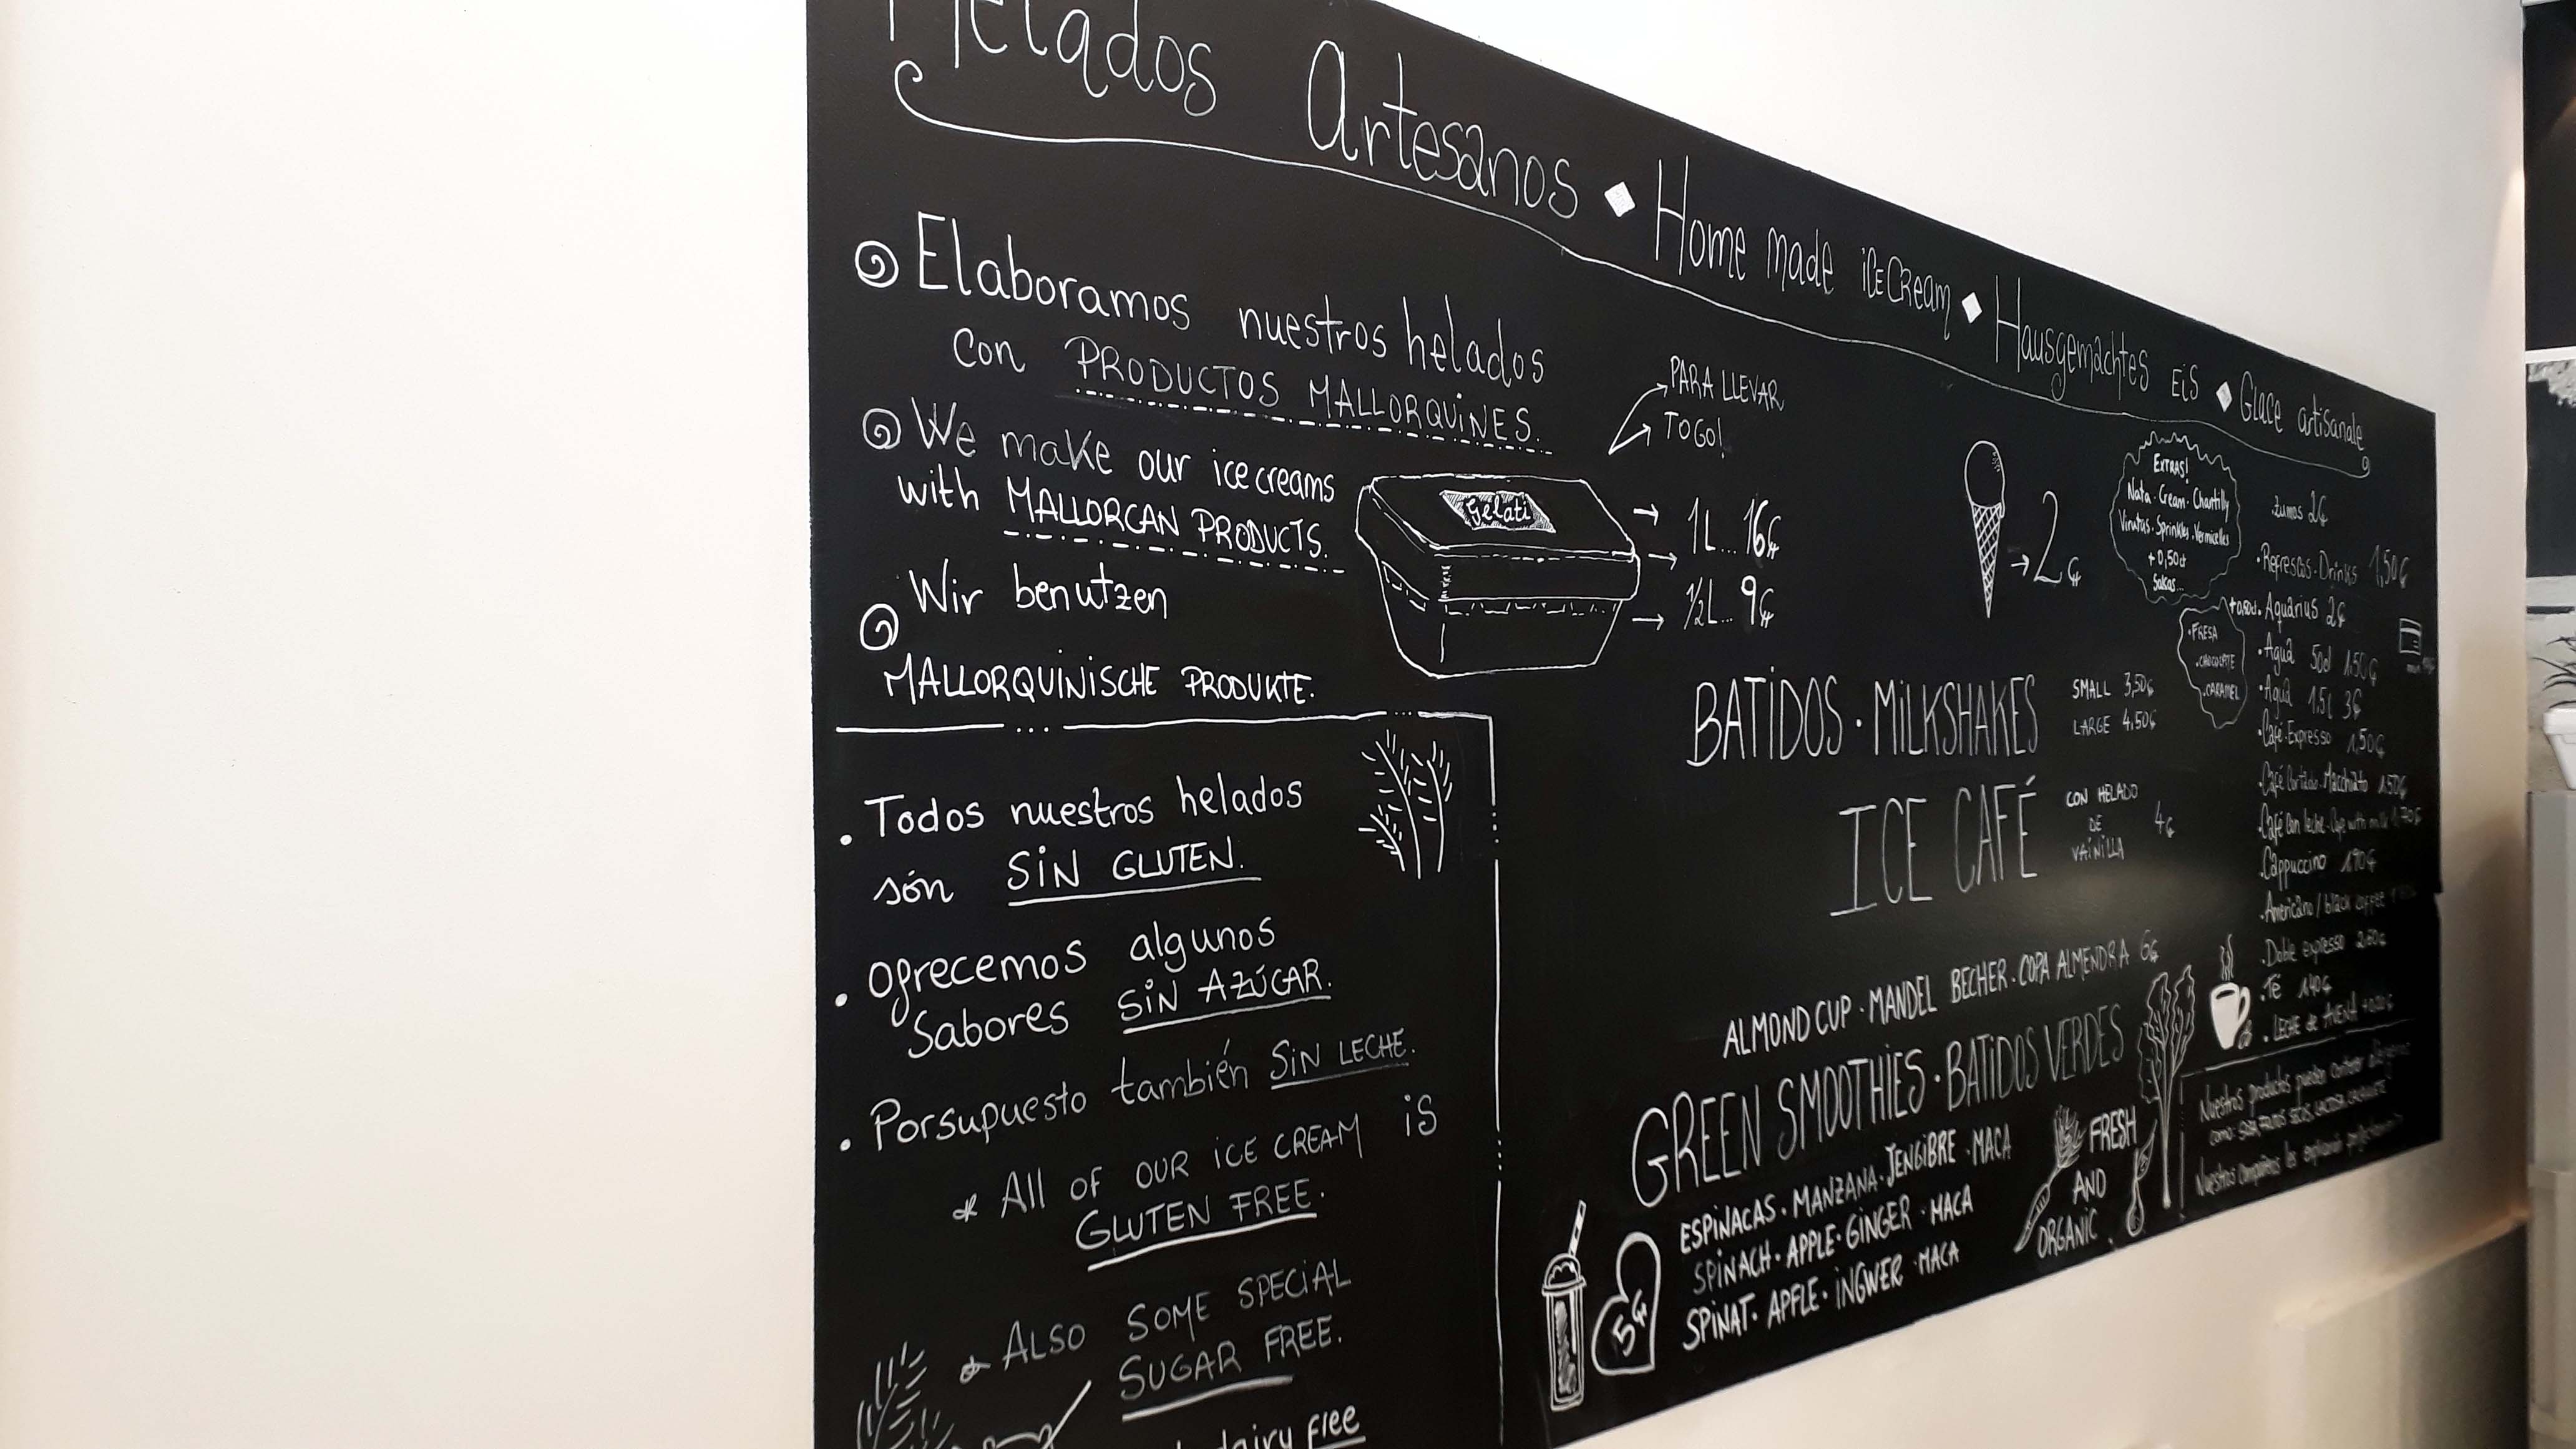 Helados Artesanos ◆ Home made iceCream ◆ Hausgemachtes Eis ◆ Glace artisanale
Elaboramos nuestros helados
con PRODUCTOS MALLORQUINES.
We make our icecreams
with MALLORCAN PRODUCTS.
Wir benutzen
MALLORQUINISCHE PRODUKTE.
Todos nuestros helados
són SIN GLUTEN.
ofrecemos algunos
Sabores SIN AZÚCAR.
Porsupuesto también SIN LECHE.
* All OF OUR ICE CREAM is
GLUTEN FREE.
* ALSO SOME SPECIAL
SUGAR FREE.
dairy free
PARA LLEVAR
TO GO!
Gelati
1L... 16€
½L... 9€
2€
EXTRAS!
Nata · Cream · Chantilly
Virutas · Sprinkles · Vermicelles
+ 0,50ct
Salsas...
+0,50ct.
· FRESA
· CHOCOLATE
· CARAMEL
BATIDOS · MILKSHAKES
SMALL 3,50€
LARGE 4,50€
ICE CAFÉ
CON HELADO
DE
VAINILLA
4€
ALMOND CUP · MANDEL BECHER · COPA ALMENDRA 6€
GREEN SMOOTHIES · BATIDOS VERDES
ESPINACAS · MANZANA · JENGIBRE · MACA
SPINACH · APPLE · GINGER · MACA
SPINAT · APFLE · INGWER · MACA
5€
FRESH
AND
ORGANIC
. Zumos 2€
· Refrescos · Drinks 1,50€
· Aquarius 2€
· Agua 50cl 1,50€
· Agua 1.5l 3€
· Café · Expresso 1,50€
· Café Cortado · Macchiato 1,50€
· Café con leche · Cafe with milk 1,70€
· Cappuccino 1,90€
· Americano / black coffee
· Doble expresso 2,60€
· Té 1,40€
· LECHE de AVENA
Nuestros productos pueden contener alérgenos
como: SOJA, FRUTOS SECOS, LACTOSA, CACAHUETE
Nuestros compañeros les explicarán